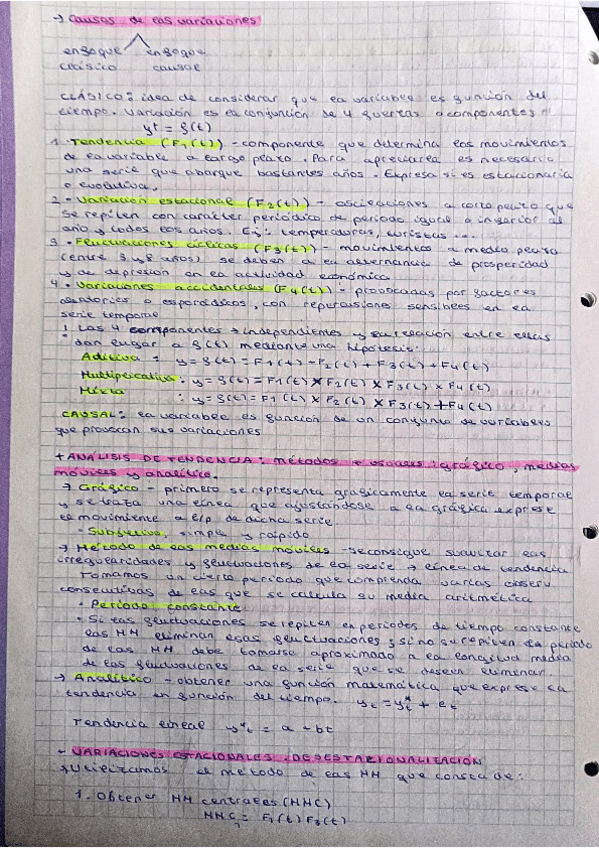 → Causas de las variaciones
enfoque enfoque
clásico causal
CLÁSICO: idea de considerar que la variable es función del
tiempo. Variación es la conjunción de 4 fuerzas o componentes
yt = f(t)
1. Tendencia (F1(t)) - componente que determina los movimientos
de la variable a largo plazo. Para apreciarla es necesario
una serie que abarque bastantes años. Expresa si es estacionaria
o evolutiva.
2. Variación estacional (F2(t)) - oscilaciones a corto plazo que
se repiten con carácter periódico de periodo igual o inferior al
año y todos los años. Ej: temperaturas, turistas...
3. Fluctuaciones cíclicas (F3(t)) - movimientos a medio plazo
(entre 3 y 8 años) se deben a la alternancia de prosperidad
y de depresión en la actividad económica
4. Variaciones accidentales (F4(t)) - provocadas por factores
aleatorios o esporádicos, con repercusiones sensibles en la
serie temporal
! Las 4 componentes → independientes y su relación entre ellas
dan lugar a f(t) mediante una hipótesis:
Aditiva : y = f(t) = F1(t) + F2(t) + F3(t) + F4(t)
Multiplicativa : y = f(t) = F1(t) x F2(t) x F3(t) x F4(t)
Mixta : y = f(t) = F1(t) x F2(t) x F3(t) + F4(t)
CAUSAL: la variable es función de un conjunto de variables
que provocan sus variaciones
+ ANÁLISIS DE TENDENCIA: métodos + usuales: gráfico, medias
móviles y analítico.
→ Gráfico - primero se representa gráficamente la serie temporal
y se traza una línea que ajustándose a la gráfica exprese
el movimiento a l/p de dicha serie
• Subjetivo, simple y rápido
→ Método de las medias móviles - se consigue suavizar las
irregularidades y fluctuaciones de la serie → línea de tendencia
Tomamos un cierto periodo que comprenda varias observ
consecutivas de las que se calcula su media aritmética
• Periodo constante
• Si las fluctuaciones se repiten en periodos de tiempo constante
las MM eliminan esas fluctuaciones y si no se repiten el periodo
de las MM debe tomarse aproximado a la longitud media
de las fluctuaciones de la serie que se deseen eliminar.
→ Analítico - obtener una función matemática que exprese la
tendencia en función del tiempo. yt = yt* + et
Tendencia lineal yt* = a + bt
- VARIACIONES ESTACIONALES. DESESTACIONALIZACIÓN
Utilizamos el método de las MM que consta de:
1. Obtener MM centrales (MMC)
MMC = F1(t) F3(t)